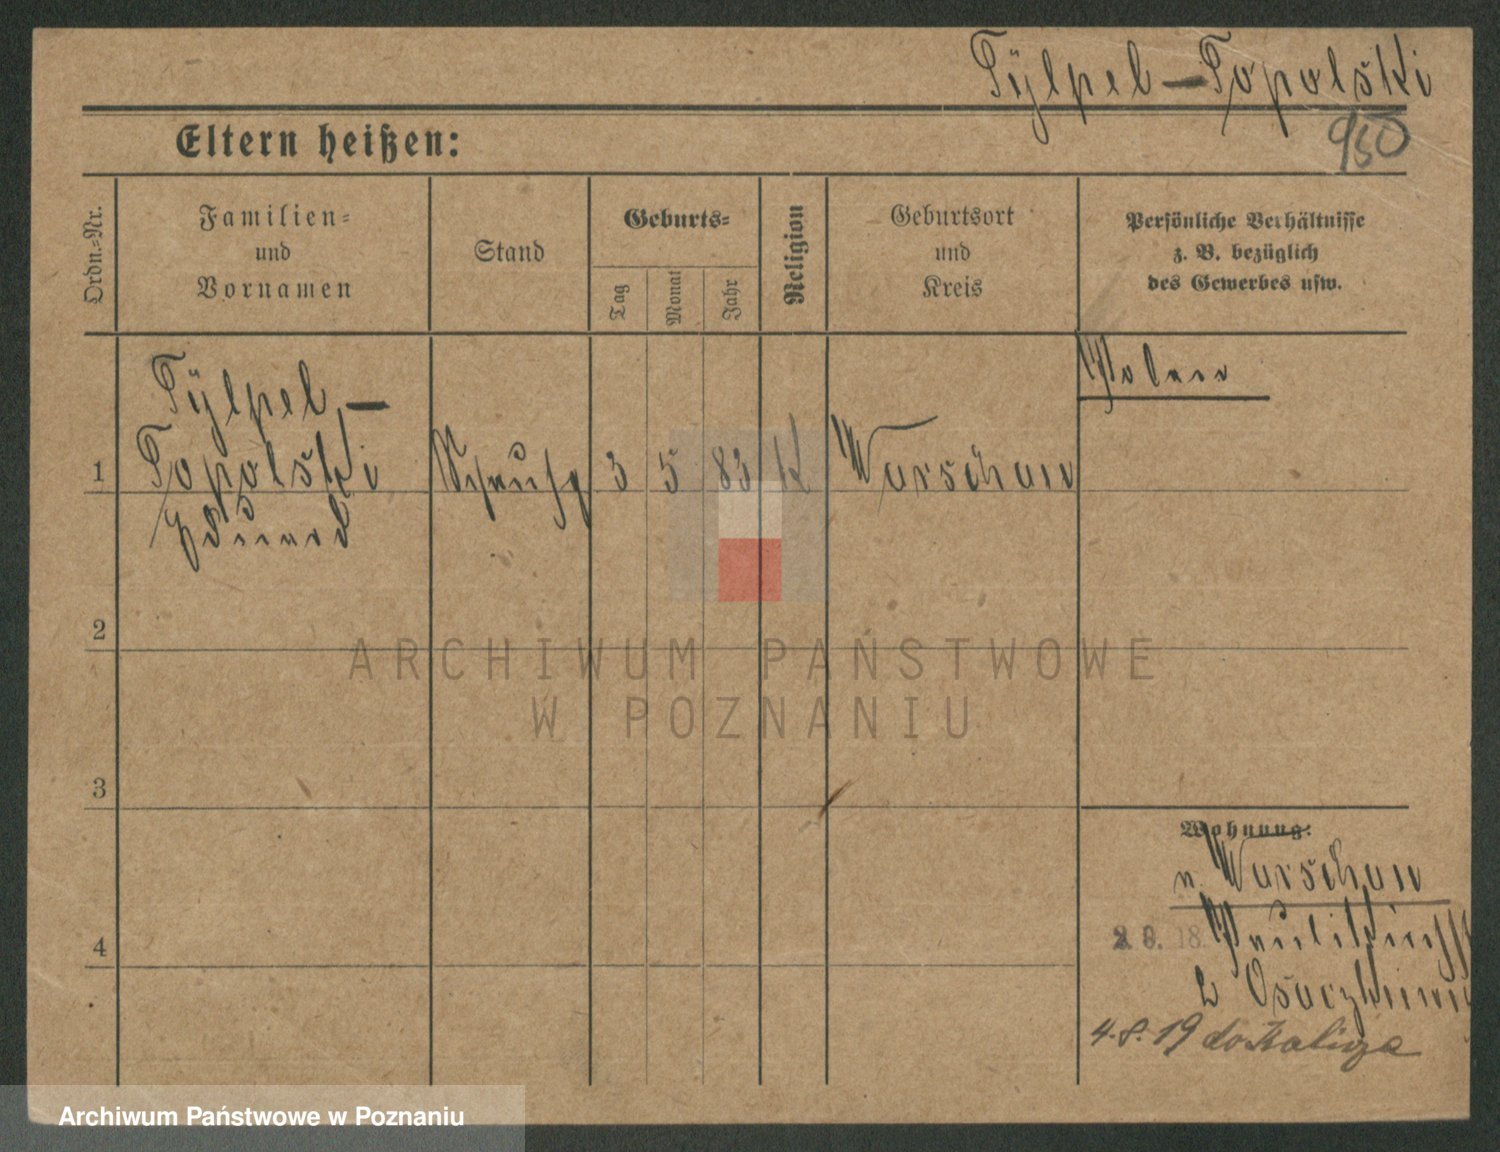 Tÿlpel – Topolski
950
Eltern heißen:
Ordn.-Nr.
Familien- und Vornamen
Stand
Geburts-
Tag
Monat
Jahr
Religion
Geburtsort und Kreis
Persönliche Verhältnisse z. B. bezüglich des Gewerbes usw.
Polen
Tÿlpel –
1 Topolski 3 5 83 K Warschau
Eduard
2
ARCHIWUM PAŃSTWOWE
W POZNANIU
3
Wohnung:
n. Warschau
4
18.
2
4. 8. 19 do Kalisza
Archiwum Państwowe w Poznaniu